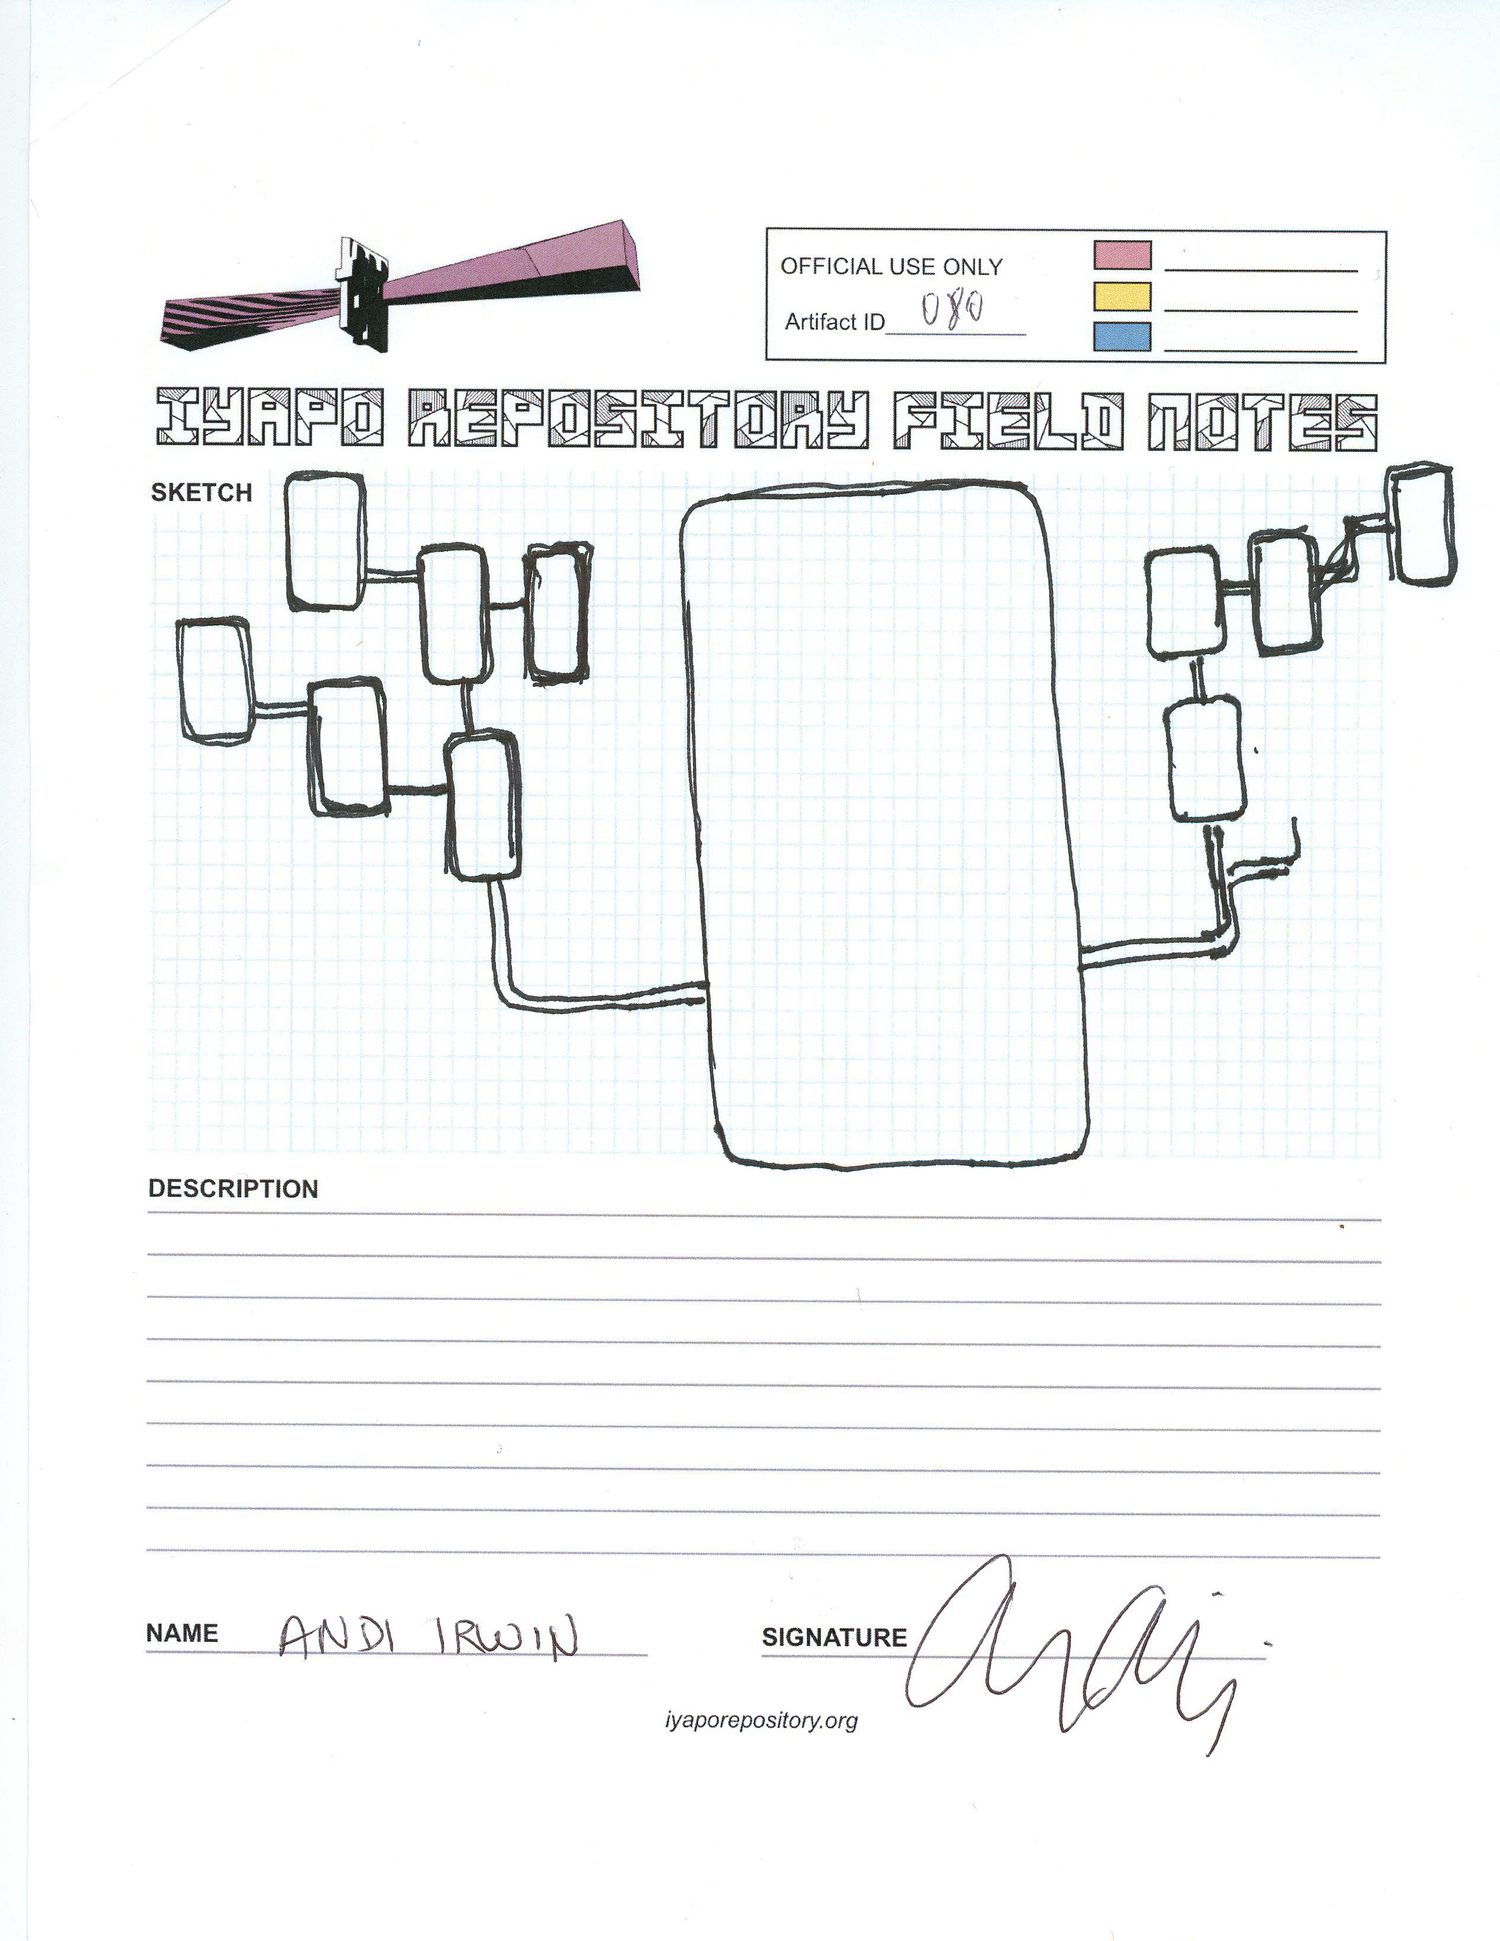 OFFICIAL USE ONLY
Artifact ID 080
IYAPO REPOSITORY FIELD NOTES
SKETCH
DESCRIPTION
NAME ANDI IRWIN
SIGNATURE
iyaporepository.org